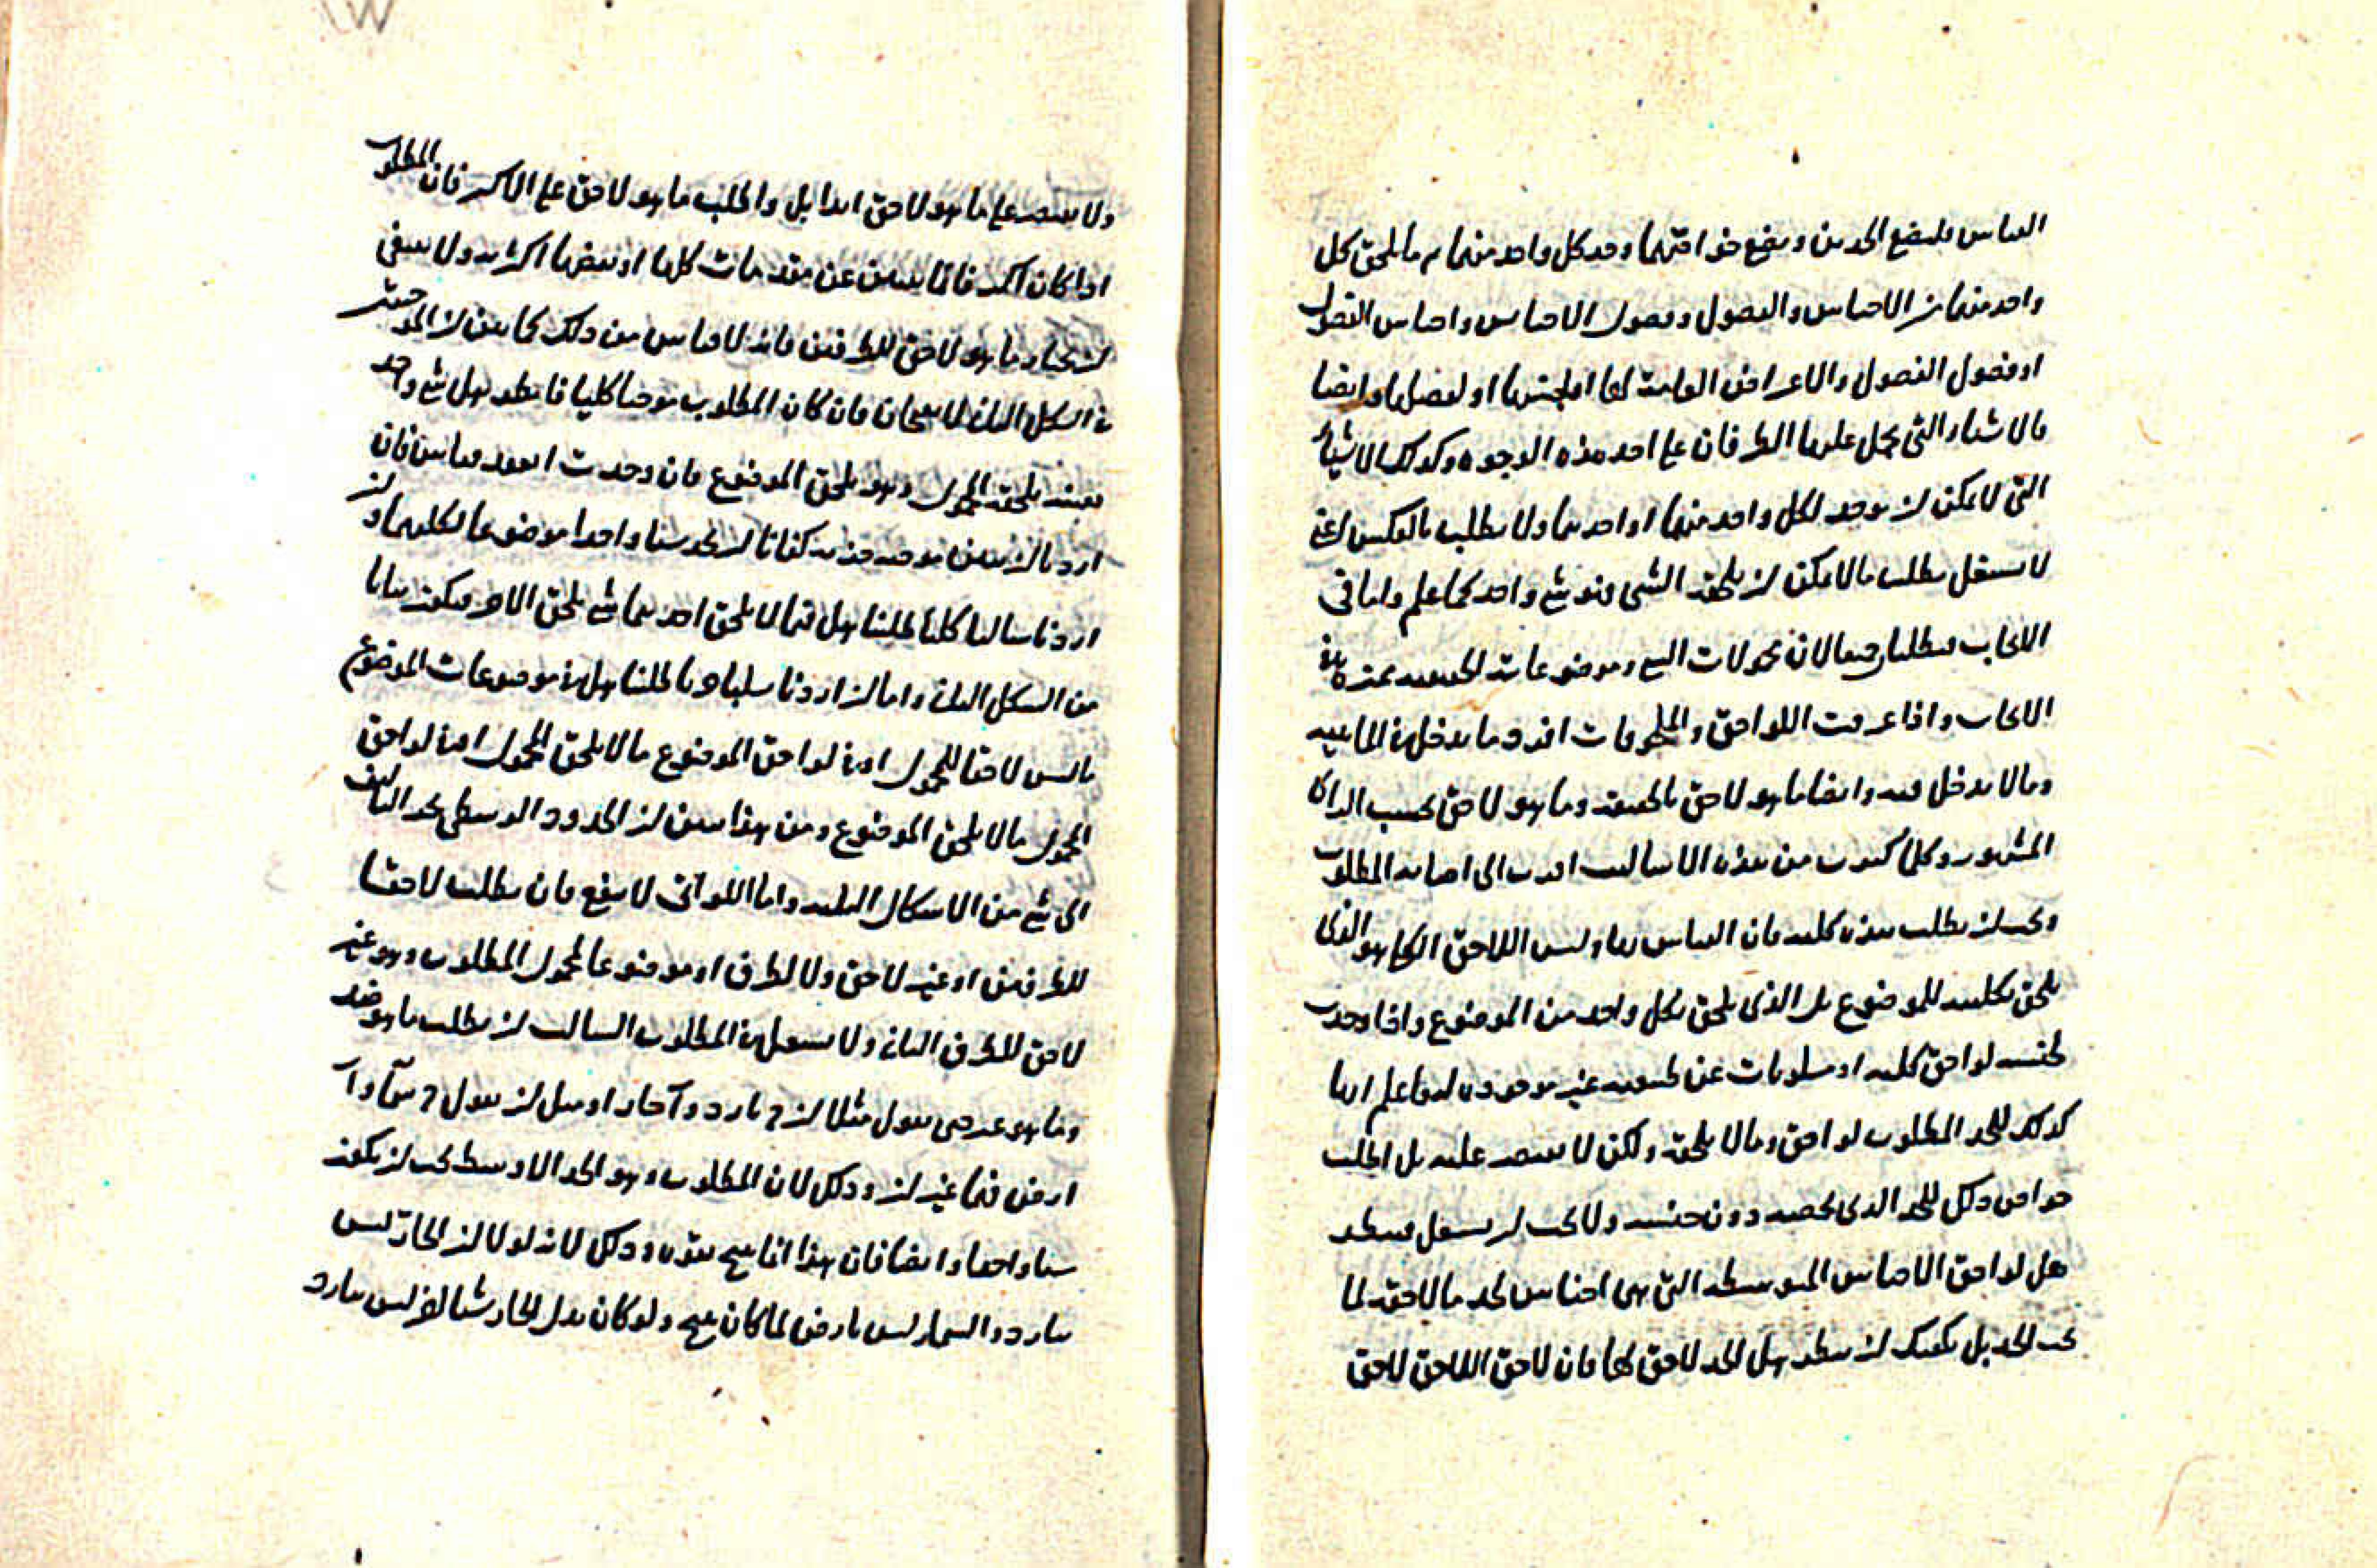 القياس فليضع الحدين ويضع خواصهما وحد كل واحد منهما ثم ما يلحق كل
واحد منهما من الاجناس والفصول وفصول الاجناس واجناس الفصول
او فصول الفصول والاعراض العامة لها او لجنسها او لفصلها وايضا
فالاشياء التي يحمل عليها الطرفان على احد هذه الوجوه وكذلك الاشياء
التي لا يمكن ان يوجد لكل واحد منهما او احدهما ولا يطلب بالعكس اعني
لا يشتغل بطلب ما لا يمكن ان يلحقه الشي فهو شي واحد كما علم واما في
الايجاب فيطلبان جميعا لان محمولات الشي وموضوعاته الحقيقية متميزة في
الايجاب واذا عرفت اللواحق والملحوقات افرد ما يدخل في الماهية
وما لا يدخل فيه وايضا ما هو لاحق بالحقيقة وما هو لاحق بحسب الراى
المشهور وكلما كثرت من هذه الاساليب اقرب الى اصابة المطلوب
ويجب ان يطلب هذه كلية فان القياس بها وليس اللاحق الكلي هو الذي
يلحق بكليته للموضوع بل الذي يلحق بكل واحد من الموضوع واذا وجدت
لجنسه لواحق كلية او مسلوبات عن طبيعته غير موجودة لها علم انها
كذلك للحد المطلوب لواحق وما لا يلحقه ولكن لا يقتصر عليه بل اطلب
خواص ذلك للحد الذي يخصه دون جنسه ولا يجب ان يشتغل فينظر
هل لواحق الاجناس المتوسطة التي هي اجناس الحد ما لاحقة لما
تحت الحد بل يكفيك ان ينظر هل الحد لاحق لها فان لاحق اللاحق لاحق
ولا يقتصر على ما هو لاحق ابدا بل واطلب ما هو لاحق على الاكثر فان المطلوب
اذا كان اكثريا فانما يتبين عن مقدمات كلها او بعضها اكثرية ولا ينبغي
ان يختار ما هو لاحق للطرفين فانه لا قياس من ذلك كما بين ان الموجبتين
في الشكل الثاني لا ينتجان فان كان المطلوب موجبا كليا فانظر هل شي واحد
بعينه يلحقه المحمول وهو يلحق الموضوع فان وجدت انعقد قياس فان
اردنا ان نبين موجبة جزئية كفانا ان نجد شيا واحدا موضوعا لكليهما وان
اردنا سالبا كليا طلبنا هل فيما لا يلحق احدهما شي يلحق الاخر فيكون بيانا
من الشكل الثاني واما ان اردنا سلبا جزئيا طلبنا هل في موضوعات الموضوع
ما ليس لاحقا للمحمول او في لواحق الموضوع ما لا يلحق المحمول او في لواحق
المحمول ما لا يلحق الموضوع ومن هذا يتبين ان الحدود الوسطى بحد التاليف
الى شي من الاشكال الثلثة واما اللواتي لا ينفع فان يطلب لاحقا
للطرفين او غير لاحق ولا لطرف او موضوعا لمحمول المطلوب وهو غير
لاحق للطرف الثاني ولا يشتغل في المطلوب السالب ان يطلب ما هو ضد
وما هو عرضي بقول مثلا ان ج بارد و آ حار او مثل ان يقول ج سما و آ
ارض فهما غير ان وذلك لان المطلوب وهو الحد الاوسط يجب ان يكون
شيا واحدا وايضا فان هذا انما ينتج بقوة وذلك لانه لولا ان الحار ليس
ببارد والسما ليس بارض لما كان ينتج ولو كان بدل الحار شيا اخر ليس ببارد